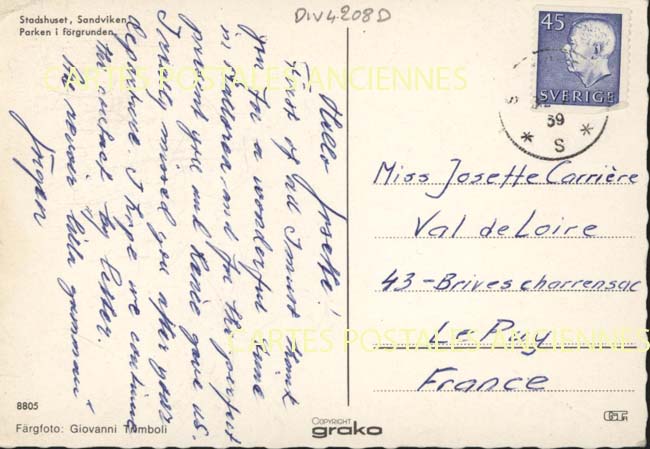 Stadshuset, Sandviken
Parken i förgrunden.
DIV4208D
45
SVERIGE
59
S
S
CARTES POSTALES ANCIENNES
Hello Josette!
First of all I must thank
you for a wonderful time
in and for the
present you and gave us.
I really missed you after your
departure. I hope we continue
the contact by letter.
Au revoir lilla gumman
Jörgen
Miss Josette Carrière
Val de Loire
43-Brives charrensac
Le Puy
France
CARTES POSTALES ANCIENNES
8805
Färgfoto: Giovanni Trimboli
COPYRIGHT
grako